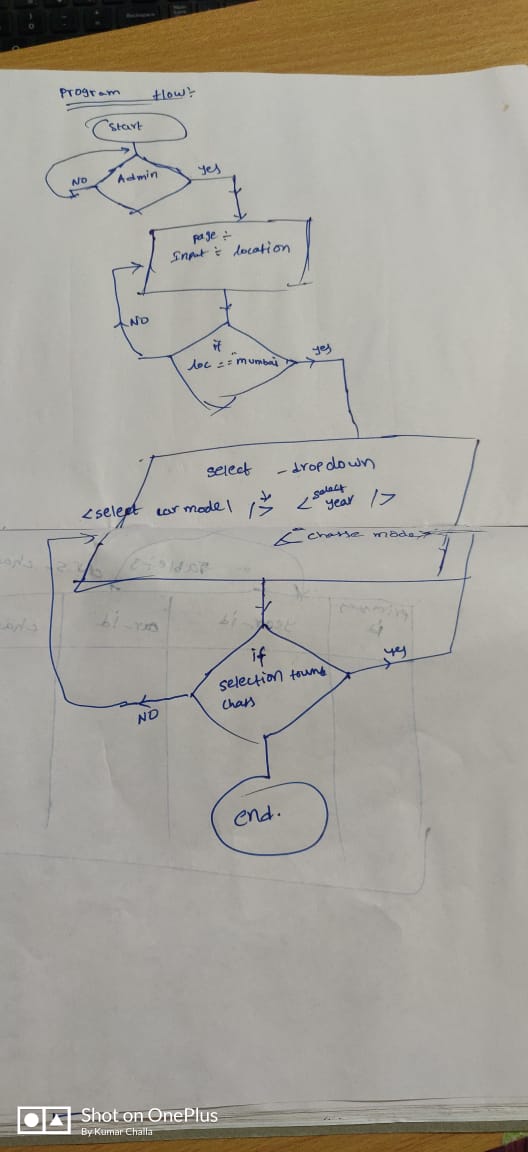 Program flow:-
Start
Admin
NO
yes
page :-
Input :- location
NO
if
loc == "mumbai"
yes
select - dropdown
<select car model /> <select year />
< chasse mode
if
selection found
chass
yes
NO
end.
Table-3
user-id
car-id
Shot on OnePlus
By Kumar Challa